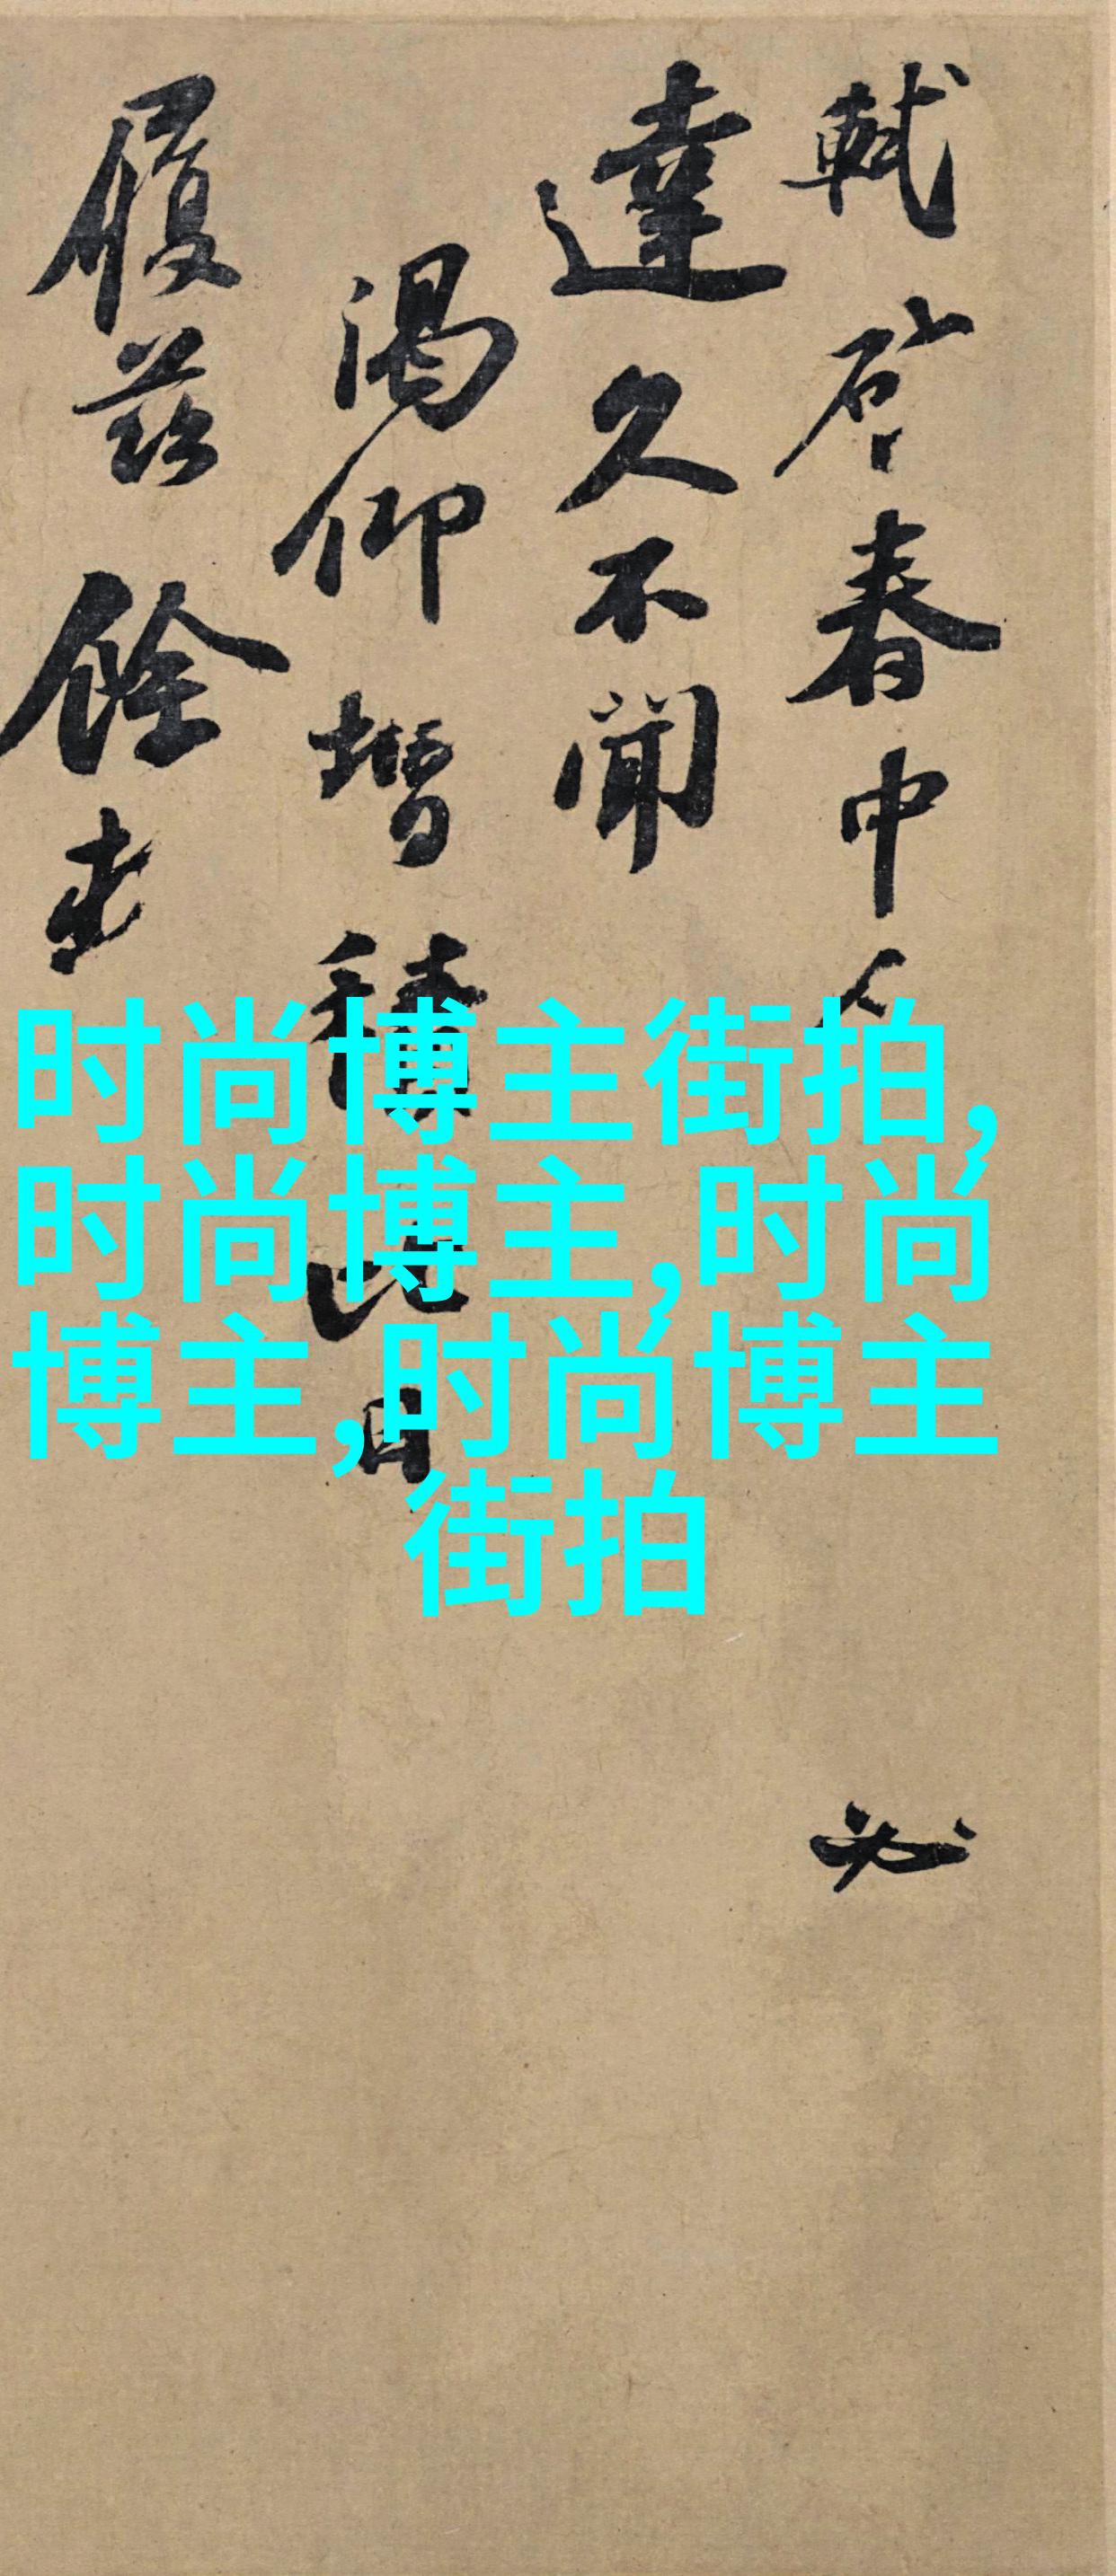 軾啓春中
必
達久不聞
渴仰增積比日
履茲餘
时尚博主街拍,
时尚博主,时尚
博主,时尚博主
街拍